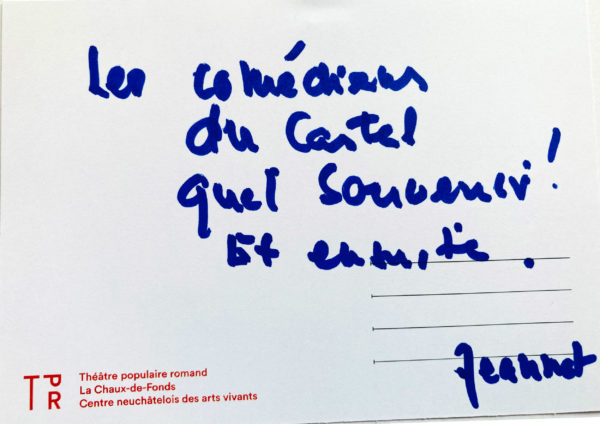 Les comédiens
du Castel
quel souvenir !
Et
Jeannot
TPR
Théâtre populaire romand
La Chaux-de-Fonds
Centre neuchâtelois des arts vivants